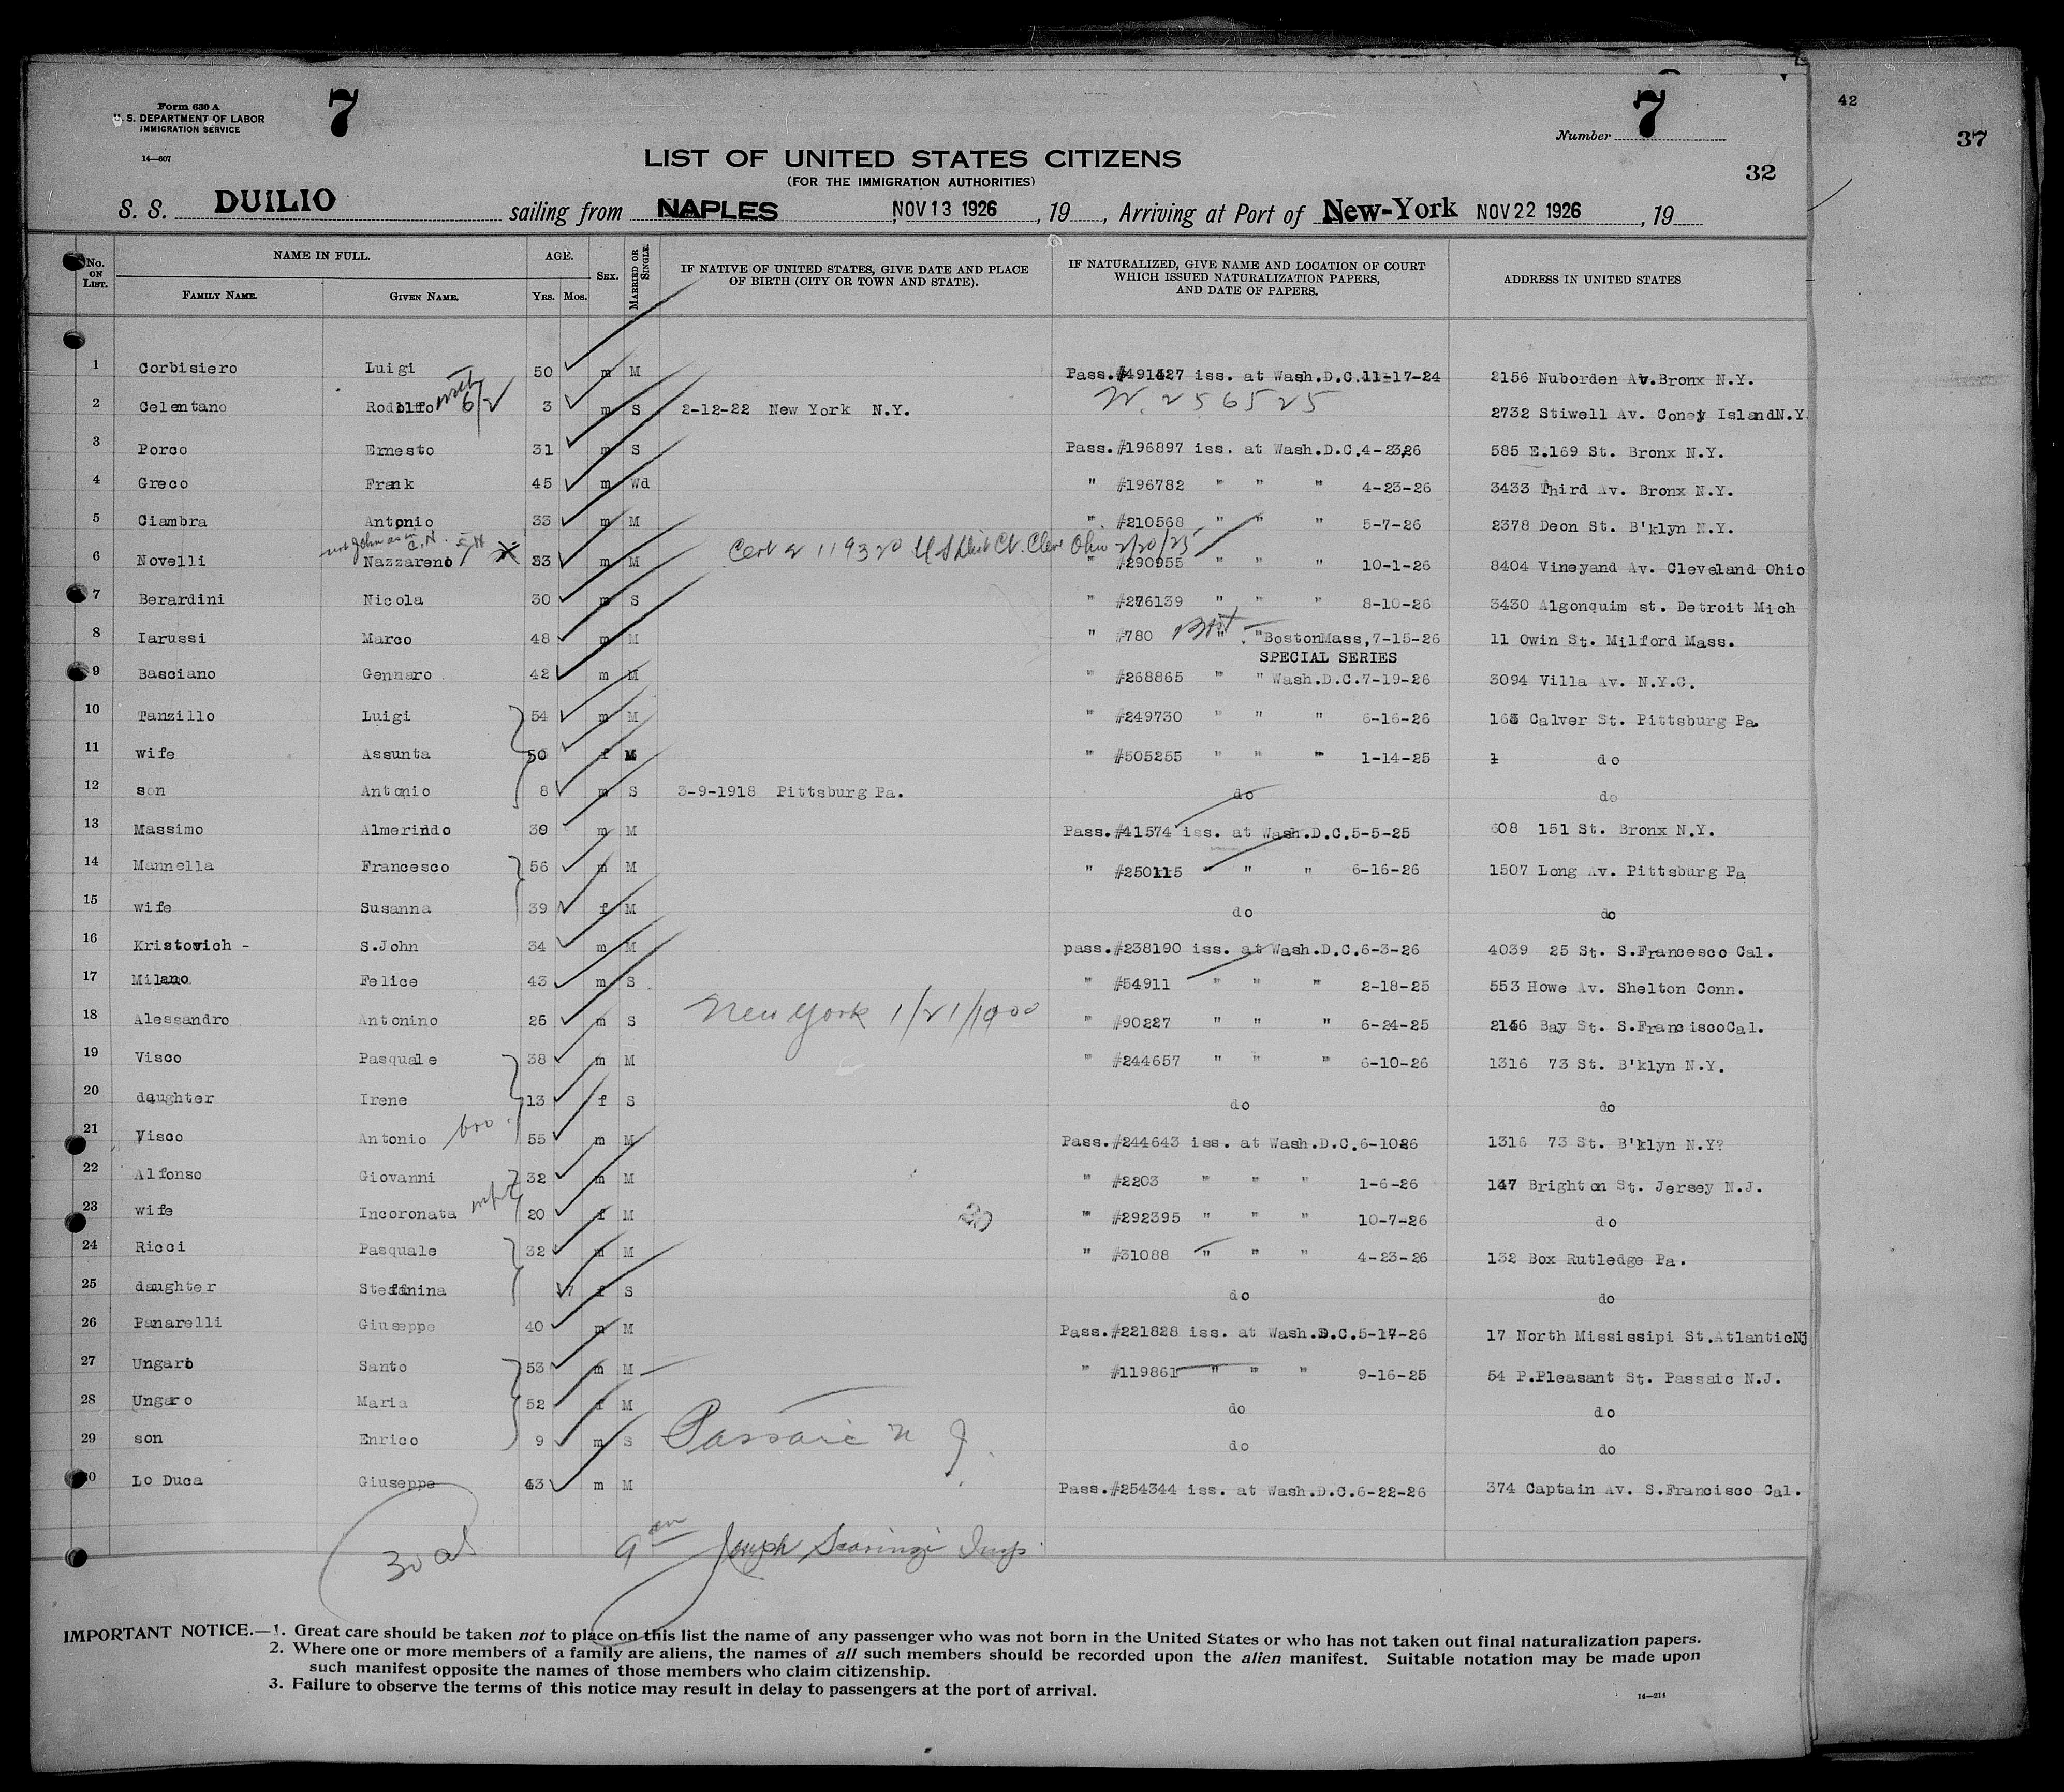 Form 630 A
U. S. DEPARTMENT OF LABOR
IMMIGRATION SERVICE
14—607
7
Number 7
32
42
37
LIST OF UNITED STATES CITIZENS
(FOR THE IMMIGRATION AUTHORITIES)
S. S. DUILIO sailing from NAPLES NOV 13 1926, 19, Arriving at Port of New-York NOV 22 1926, 19
No. ON LIST. NAME IN FULL. AGE. SEX. MARRIED OR SINGLE. IF NATIVE OF UNITED STATES, GIVE DATE AND PLACE OF BIRTH (CITY OR TOWN AND STATE). IF NATURALIZED, GIVE NAME AND LOCATION OF COURT WHICH ISSUED NATURALIZATION PAPERS, AND DATE OF PAPERS. ADDRESS IN UNITED STATES
FAMILY NAME. GIVEN NAME. YRS. MOS.
1 Corbisiero Luigi 50 m M Pass.#491427 iss. at Wash.D.C.11-17-24 2156 Nuborden Av.Bronx N.Y.
2 Celentano Rodolfo with 6/2 3 m S 2-12-22 New York N.Y. N. 256525 2732 Stiwell Av. Coney IslandN.Y.
3 Porco Ernesto 31 m S Pass.#196897 iss. at Wash.D.C.4-23,26 585 E.169 St. Bronx N.Y.
4 Greco Frank 45 m Wd " #196782 " " " 4-23-26 3433 Third Av. Bronx N.Y.
5 Ciambra Antonio 33 m M " #210568 " " " 5-7-26 2378 Deon St. B'klyn N.Y.
not John as in C.N.
Cert # 119320 U S Dist Ct. Cleve Ohio 2/20/25
6 Novelli Nazzareno 33 m M " #290955 " " " 10-1-26 8404 Vineyand Av. Cleveland Ohio
7 Berardini Nicola 30 m S " #276139 " " " 8-10-26 3430 Algonquim st. Detroit Mich
8 Iarussi Marco 48 m M " #780 " "BostonMass,7-15-26 11 Owin St. Milford Mass.
SPECIAL SERIES
9 Basciano Gennaro 42 m M " #268865 " " Wash.D.C.7-19-26 3094 Villa Av. N.Y.C.
10 Tanzillo Luigi 54 m M " #249730 " " " 6-16-26 163 Calver St. Pittsburg Pa.
11 wife Assunta 50 f M " #505255 " " " 1-14-25 1 do
12 son Antonio 8 m S 3-9-1918 Pittsburg Pa. do do
13 Massimo Almerindo 39 m M Pass.#41574 iss. at Wash.D.C.5-5-25 608 151 St. Bronx N.Y.
14 Mannella Francesco 56 m M " #250115 " " " 6-16-26 1507 Long Av. Pittsburg Pa
15 wife Susanna 39 f M do do
16 Kristovich - S.John 34 m M pass.#238190 iss. at Wash.D.C.6-3-26 4039 25 St. S.Francesco Cal.
17 Milano Felice 43 m S " #54911 " " " 2-18-25 553 Howe Av. Shelton Conn.
18 Alessandro Antonino 26 m S New York 1/21/1900 " #90227 " " " 6-24-25 2146 Bay St. S.FranciscoCal.
19 Visco Pasquale 38 m M " #244657 " " " 6-10-26 1316 73 St. B'klyn N.Y.
20 daughter Irene 13 f S do do
21 Visco Antonio bro. 55 m M Pass.#244643 iss. at Wash.D.C.6-1026 1316 73 St. B'klyn N.Y?
22 Alfonso Giovanni 32 m M " #2203 " " " 1-6-26 147 Brighton St. Jersey N.J.
23 wife Incoronata 20 f M " #292395 " " " 10-7-26 do
24 Ricci Pasquale 32 m M " #31088 " " " 4-23-26 132 Box Rutledge Pa.
25 daughter Steffanina 7 f S do do
26 Panarelli Giuseppe 40 m M Pass.#221828 iss. at Wash.D.C.5-17-26 17 North Mississipi St.AtlanticNj
27 Ungaro Santo 53 m M " #119861 " " " 9-16-25 54 P.Pleasant St. Passaic N.J.
28 Ungaro Maria 52 f M do do
29 son Enrico 9 m S Passaic N J. do do
30 Lo Duca Giuseppe 43 m M Pass.#254344 iss. at Wash.D.C.6-22-26 374 Captain Av. S.Francisco Cal.
30 Joseph Scaringi Insp
IMPORTANT NOTICE.—1. Great care should be taken not to place on this list the name of any passenger who was not born in the United States or who has not taken out final naturalization papers.
2. Where one or more members of a family are aliens, the names of all such members should be recorded upon the alien manifest. Suitable notation may be made upon
such manifest opposite the names of those members who claim citizenship.
3. Failure to observe the terms of this notice may result in delay to passengers at the port of arrival.
14—214